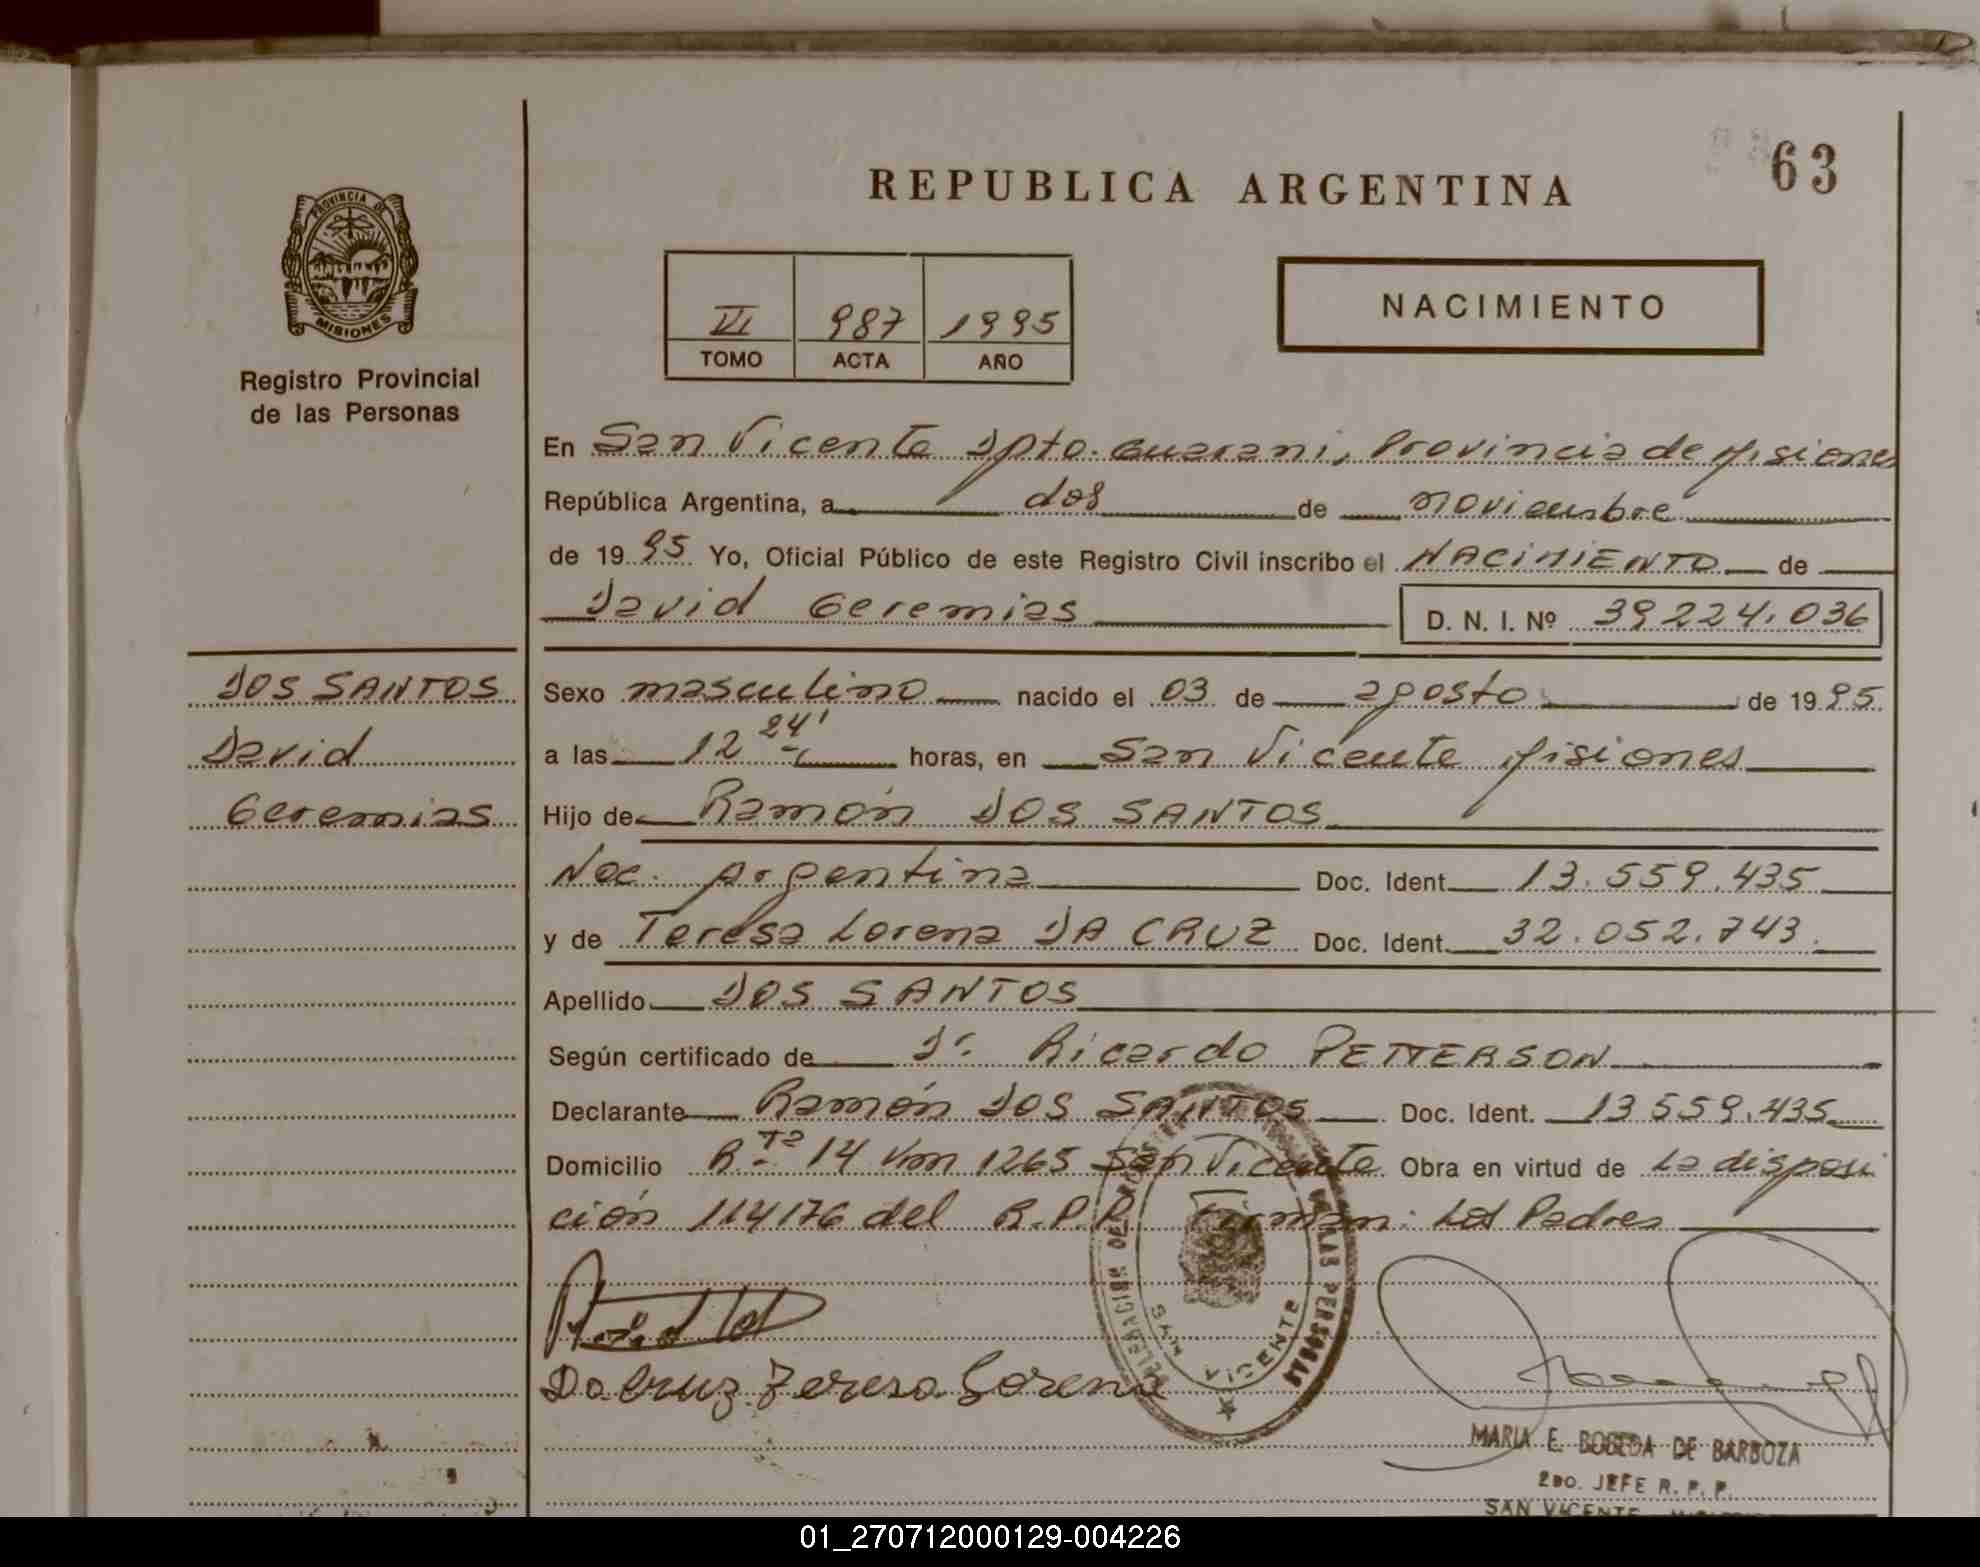 63
REPUBLICA ARGENTINA
PROVINCIA DE
MISIONES
Registro Provincial
de las Personas
VI 987 1995
TOMO ACTA AÑO
NACIMIENTO
En San Vicente Dpto. Guarani, Provincia de Misiones
República Argentina, a dos de noviembre
de 1995 Yo, Oficial Público de este Registro Civil inscribo el NACIMIENTO de
David Geremias D. N. I. Nº 39224.036
DOS SANTOS
David
Geremias
Sexo masculino nacido el 03 de agosto de 1995.
a las 12 24' horas, en San Vicente Misiones
Hijo de Ramón DOS SANTOS
Nac. Argentina Doc. Ident. 13.559.435
y de Teresa Lorena DA CRUZ Doc. Ident. 32.052.743.
Apellido DOS SANTOS
Según certificado de Dr. Ricardo PETTERSON
Declarante Ramón DOS SANTOS Doc. Ident. 13559.435
Domicilio Rta 14 Km 1265 San Vicente Obra en virtud de La disposi
ción 114176 del R.P.P. Firman: Los Padres
DE LAS PERSONAS
SAN VICENTE
Da Cruz Teresa Lorena
MARIA E. BOBEDA DE BARBOZA
2DO. JEFE R. P. P.
SAN VICENTE
01_270712000129-004226